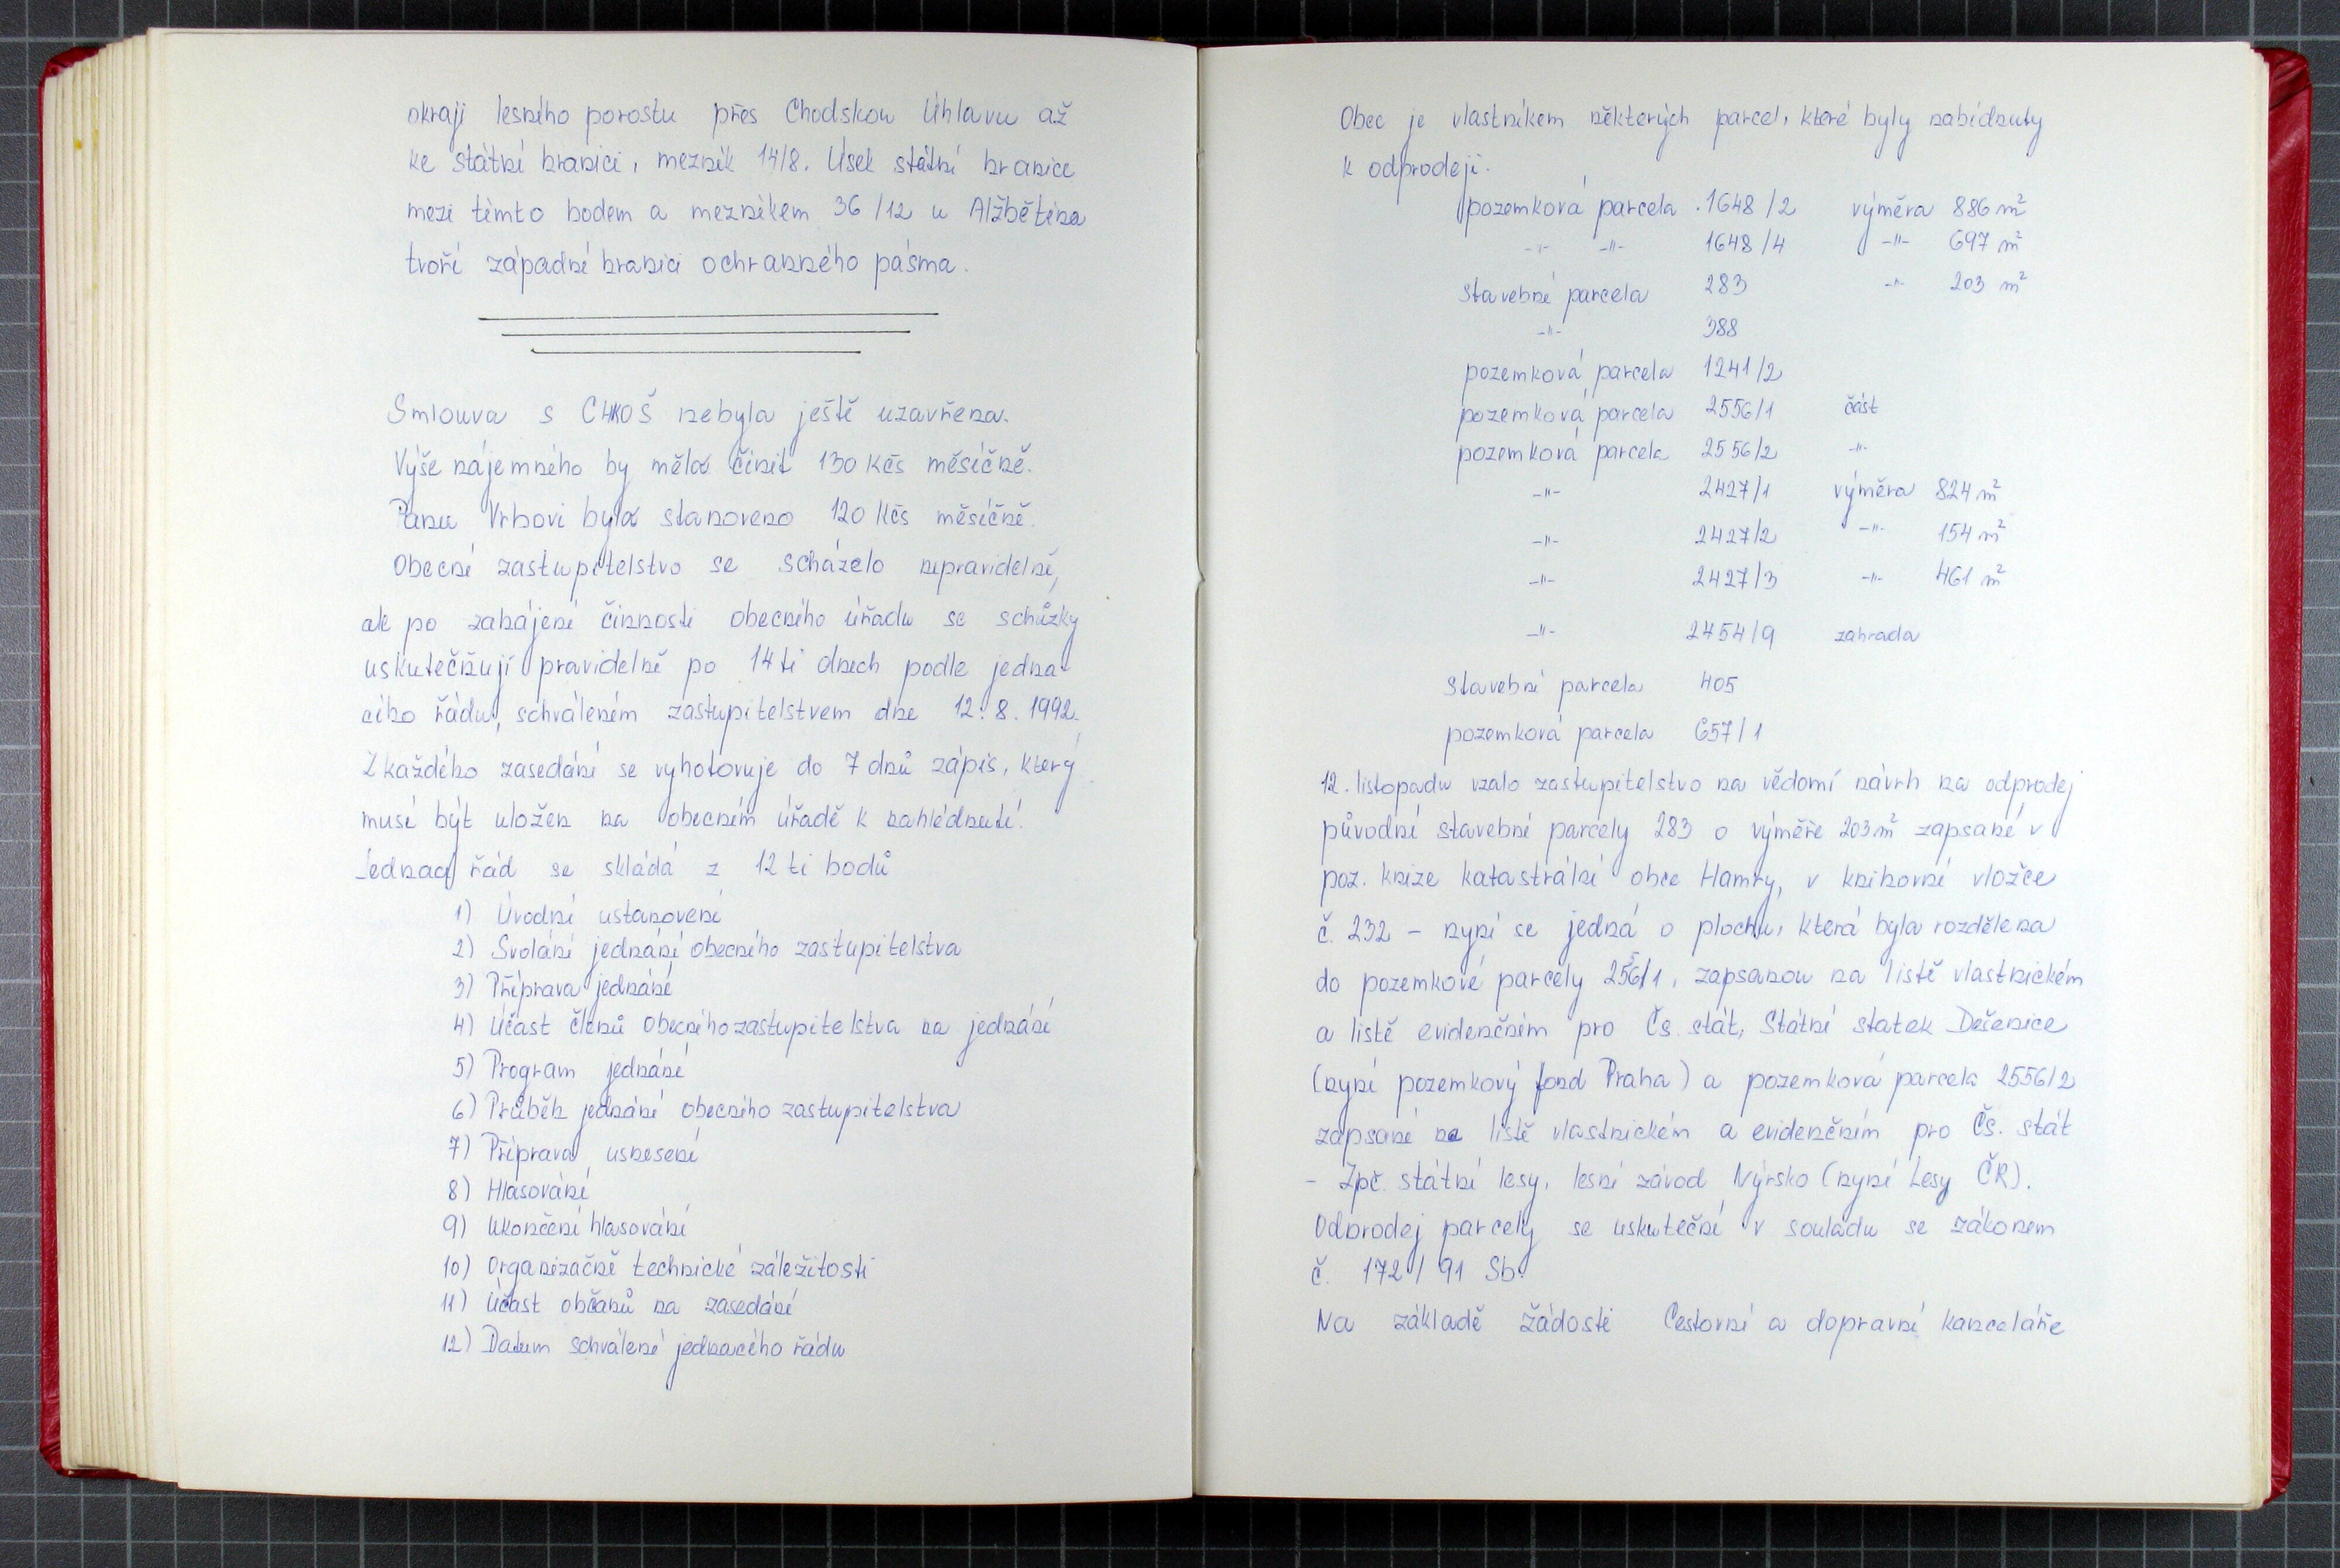 okraji lesního porostu přes Chodskou Úhlavu až
ke státní hranici, mezník 14/8. Úsek státní hranice
mezi tímto bodem a mezníkem 36/12 u Alžbětína
tvoří západní hranici ochranného pásma.
Smlouva s CHKOŠ nebyla ještě uzavřena.
Výše nájemného by měla činit 130 Kčs měsíčně.
Panu Vrbovi bylo stanoveno 120 Kčs měsíčně.
Obecní zastupitelstvo se scházelo nepravidelně,
ale po zahájení činnosti obecního úřadu se schůzky
uskutečňují pravidelně po 14ti dnech podle jedna-
cího řádu, schváleném zastupitelstvem dne 12. 8. 1992.
Z každého zasedání se vyhotovuje do 7 dnů zápis, který
musí být uložen na obecním úřadě k nahlédnutí.
Jednací řád se skládá z 12 ti bodů
1) Úvodní ustanovení
2) Svolání jednání obecního zastupitelstva
3) Příprava jednání
4) Účast členů obecního zastupitelstva na jednání
5) Program jednání
6) Průběh jednání obecního zastupitelstva
7) Příprava usnesení
8) Hlasování
9) Ukončení hlasování
10) Organizačně technické záležitosti
11) Účast občanů na zasedání
12) Datum schválení jednacího řádu
Obec je vlastníkem některých parcel, které byly nabídnuty
k odprodeji.
pozemková parcela 1648/2 výměra 886 m²
-"- -"- 1648/4 -"- 697 m²
stavební parcela 283 -"- 203 m²
-"- 388
pozemková parcela 1241/2
pozemková parcela 2556/1 část
pozemková parcela 2556/2 -"-
-"- 2427/1 výměra 824 m²
-"- 2427/2 -"- 154 m²
-"- 2427/3 -"- 461 m²
-"- 2454/9 zahrada
stavební parcela 405
pozemková parcela 657/1
12. listopadu vzalo zastupitelstvo na vědomí návrh na odprodej
původní stavební parcely 283 o výměře 203 m² zapsané v
poz. knize katastrální obce Hamry, v knihovní vložce
č. 232 – nyní se jedná o plochu, která byla rozdělena
do pozemkové parcely 2556/1, zapsanou na listě vlastnickém
a listě evidenčním pro Čs. stát, Státní statek Dešenice
(nyní pozemkový fond Praha) a pozemková parcela 2556/2
zapsané na listě vlastnickém a evidenčním pro Čs. stát
- Zpč. státní lesy, lesní závod Nýrsko (nyní Lesy ČR).
Odprodej parcely se uskuteční v souladu se zákonem
č. 172 / 91 Sb.
Na základě žádosti Cestovní a dopravní kanceláře